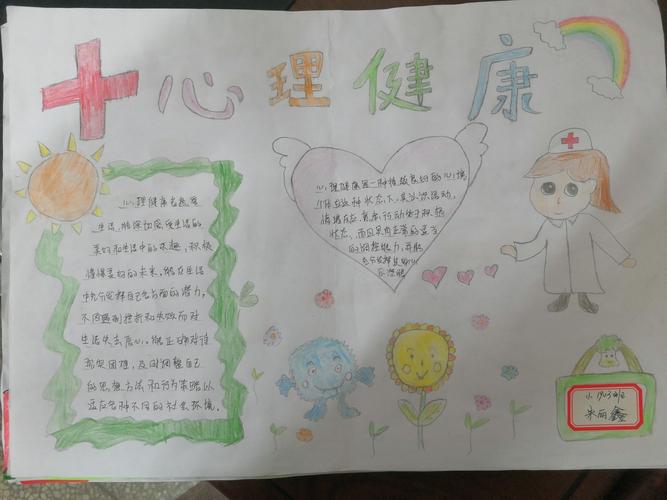 心理健康
心理健康是指
生活,能深切感受生活的
美好和生活中的乐趣,积极
憧憬美好的未来,能在生活
中充分发挥自己各方面的潜力,
不因遇到挫折和失败而对
生活失去信心。能正确对待
现实困难,及时调整自己
的思想方法和行为策略以
适应各种不同的社会环境。
心理健康是一种持续良好的心境
个体在这种状态下,其认识活动,
情绪反应、意志行动处于积极
状态,而且具有正常的适当
的调控能力,并能
充分发挥其身心
的潜能
小1903班
朱丽鑫